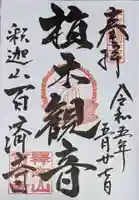 奉拝
令和五年
五月廿七日
植木観音
釈迦山百済寺